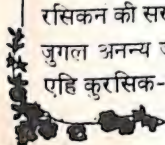 रसिकन की सर
जुगल अनन्य
एहि कुरसिक-